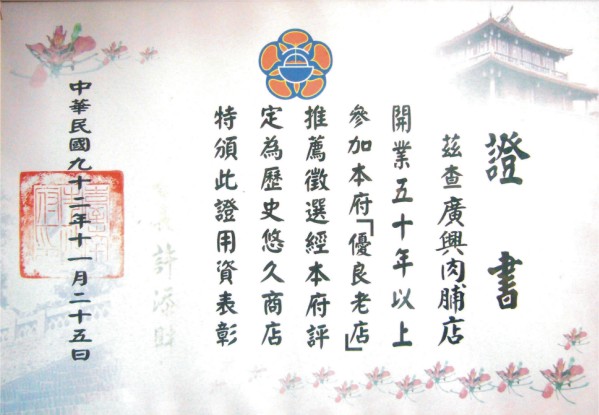 證書
茲查廣興肉脯店
開業五十年以上
參加本府「優良老店」
推薦徵選經本府評
定為歷史悠久商店
特頒此證用資表彰
許添財
中華民國九十二年十一月二十五日